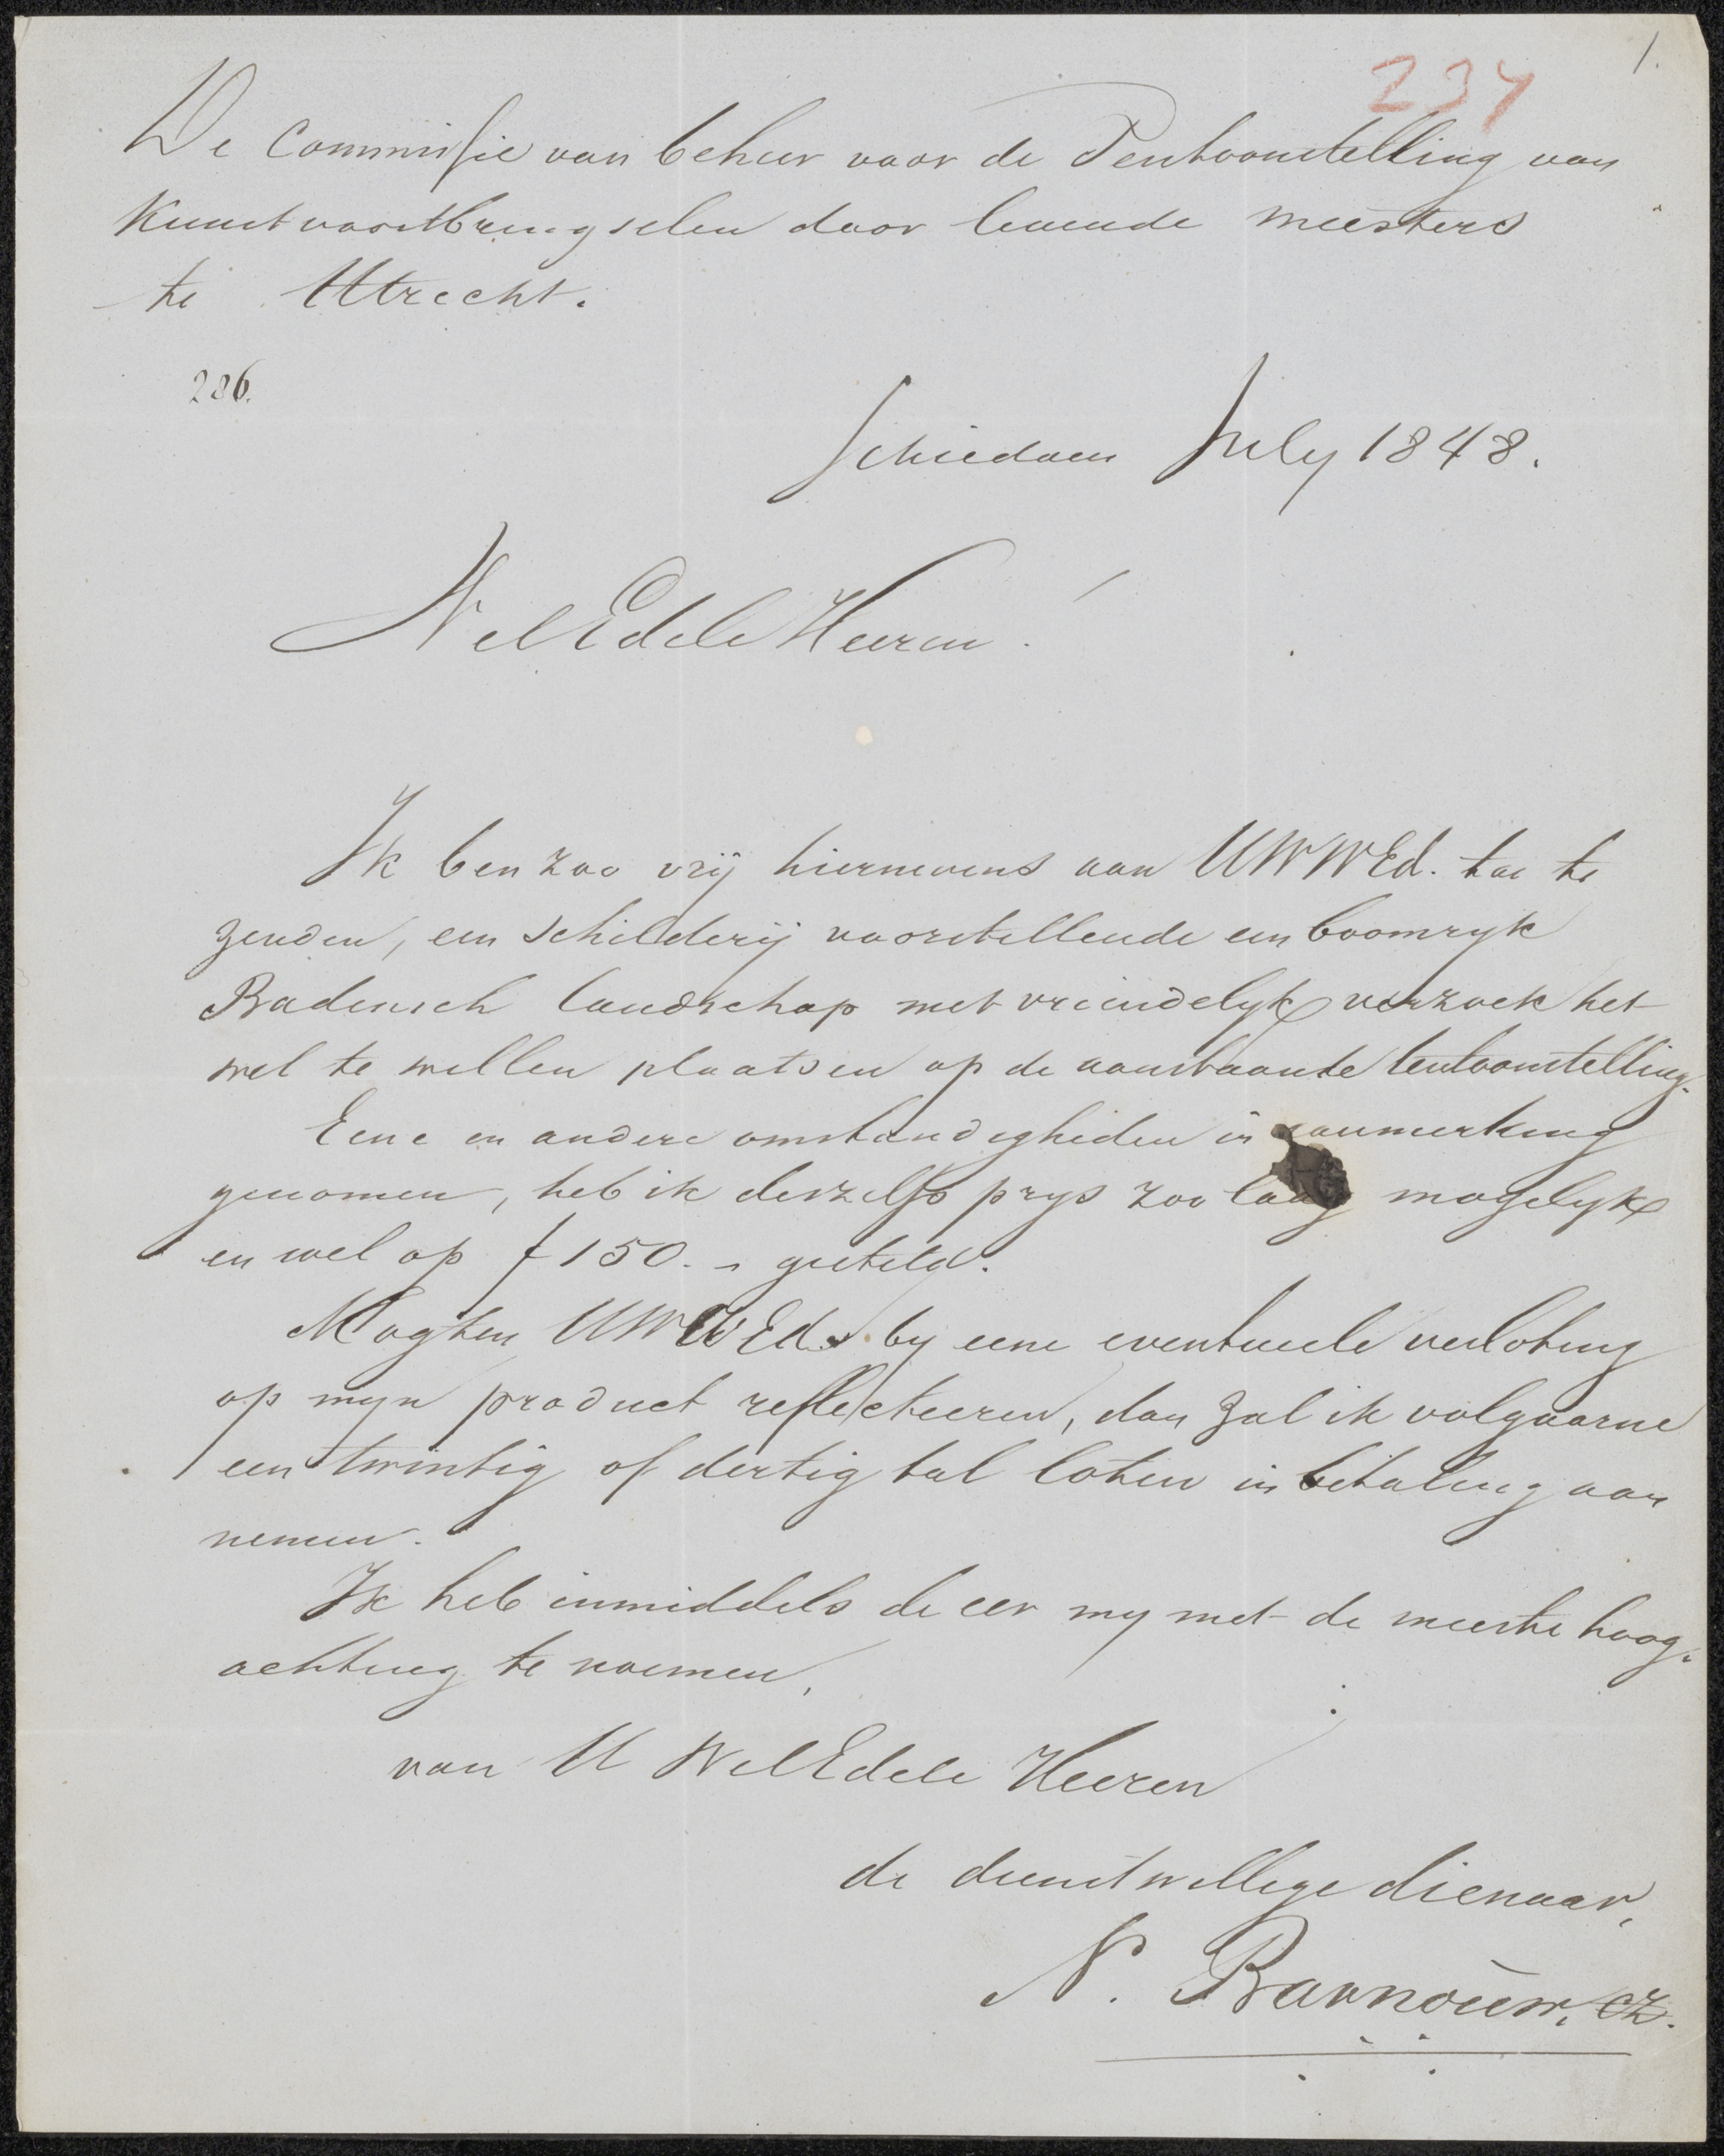 1.
237
De Commissie van beheer voor de Tentoonstelling van
Kunstvoortbrengselen door levende meesters
te Utrecht.
286.
Schiedam July 1848.
WelEdele Heeren!
Ik ben zoo vrij hiernevens aan UWWEd. toe te
zenden, een schilderij voorstellende een boomryk
Badensch landschap met vriendelyk verzoek het
wel te willen plaatsen op de aanstaande tentoonstelling.
Eene en andere omstandigheden in aanmerking
genomen, heb ik deszelfs prys zoo laag mogelyk
en wel op f 150.- gesteld.
Mogten UWWEds. by eene eventueele verloting
op myn product reflecteeren, dan zal ik volgaarne
een twintig of dertig tal loten in betaling aan
nemen.
Ik heb inmiddels de eer my met de meeste hoog-
achting te noemen,
van U WelEdele Heeren
de dienstwillige dienaar,
N. Barnouw. cz.